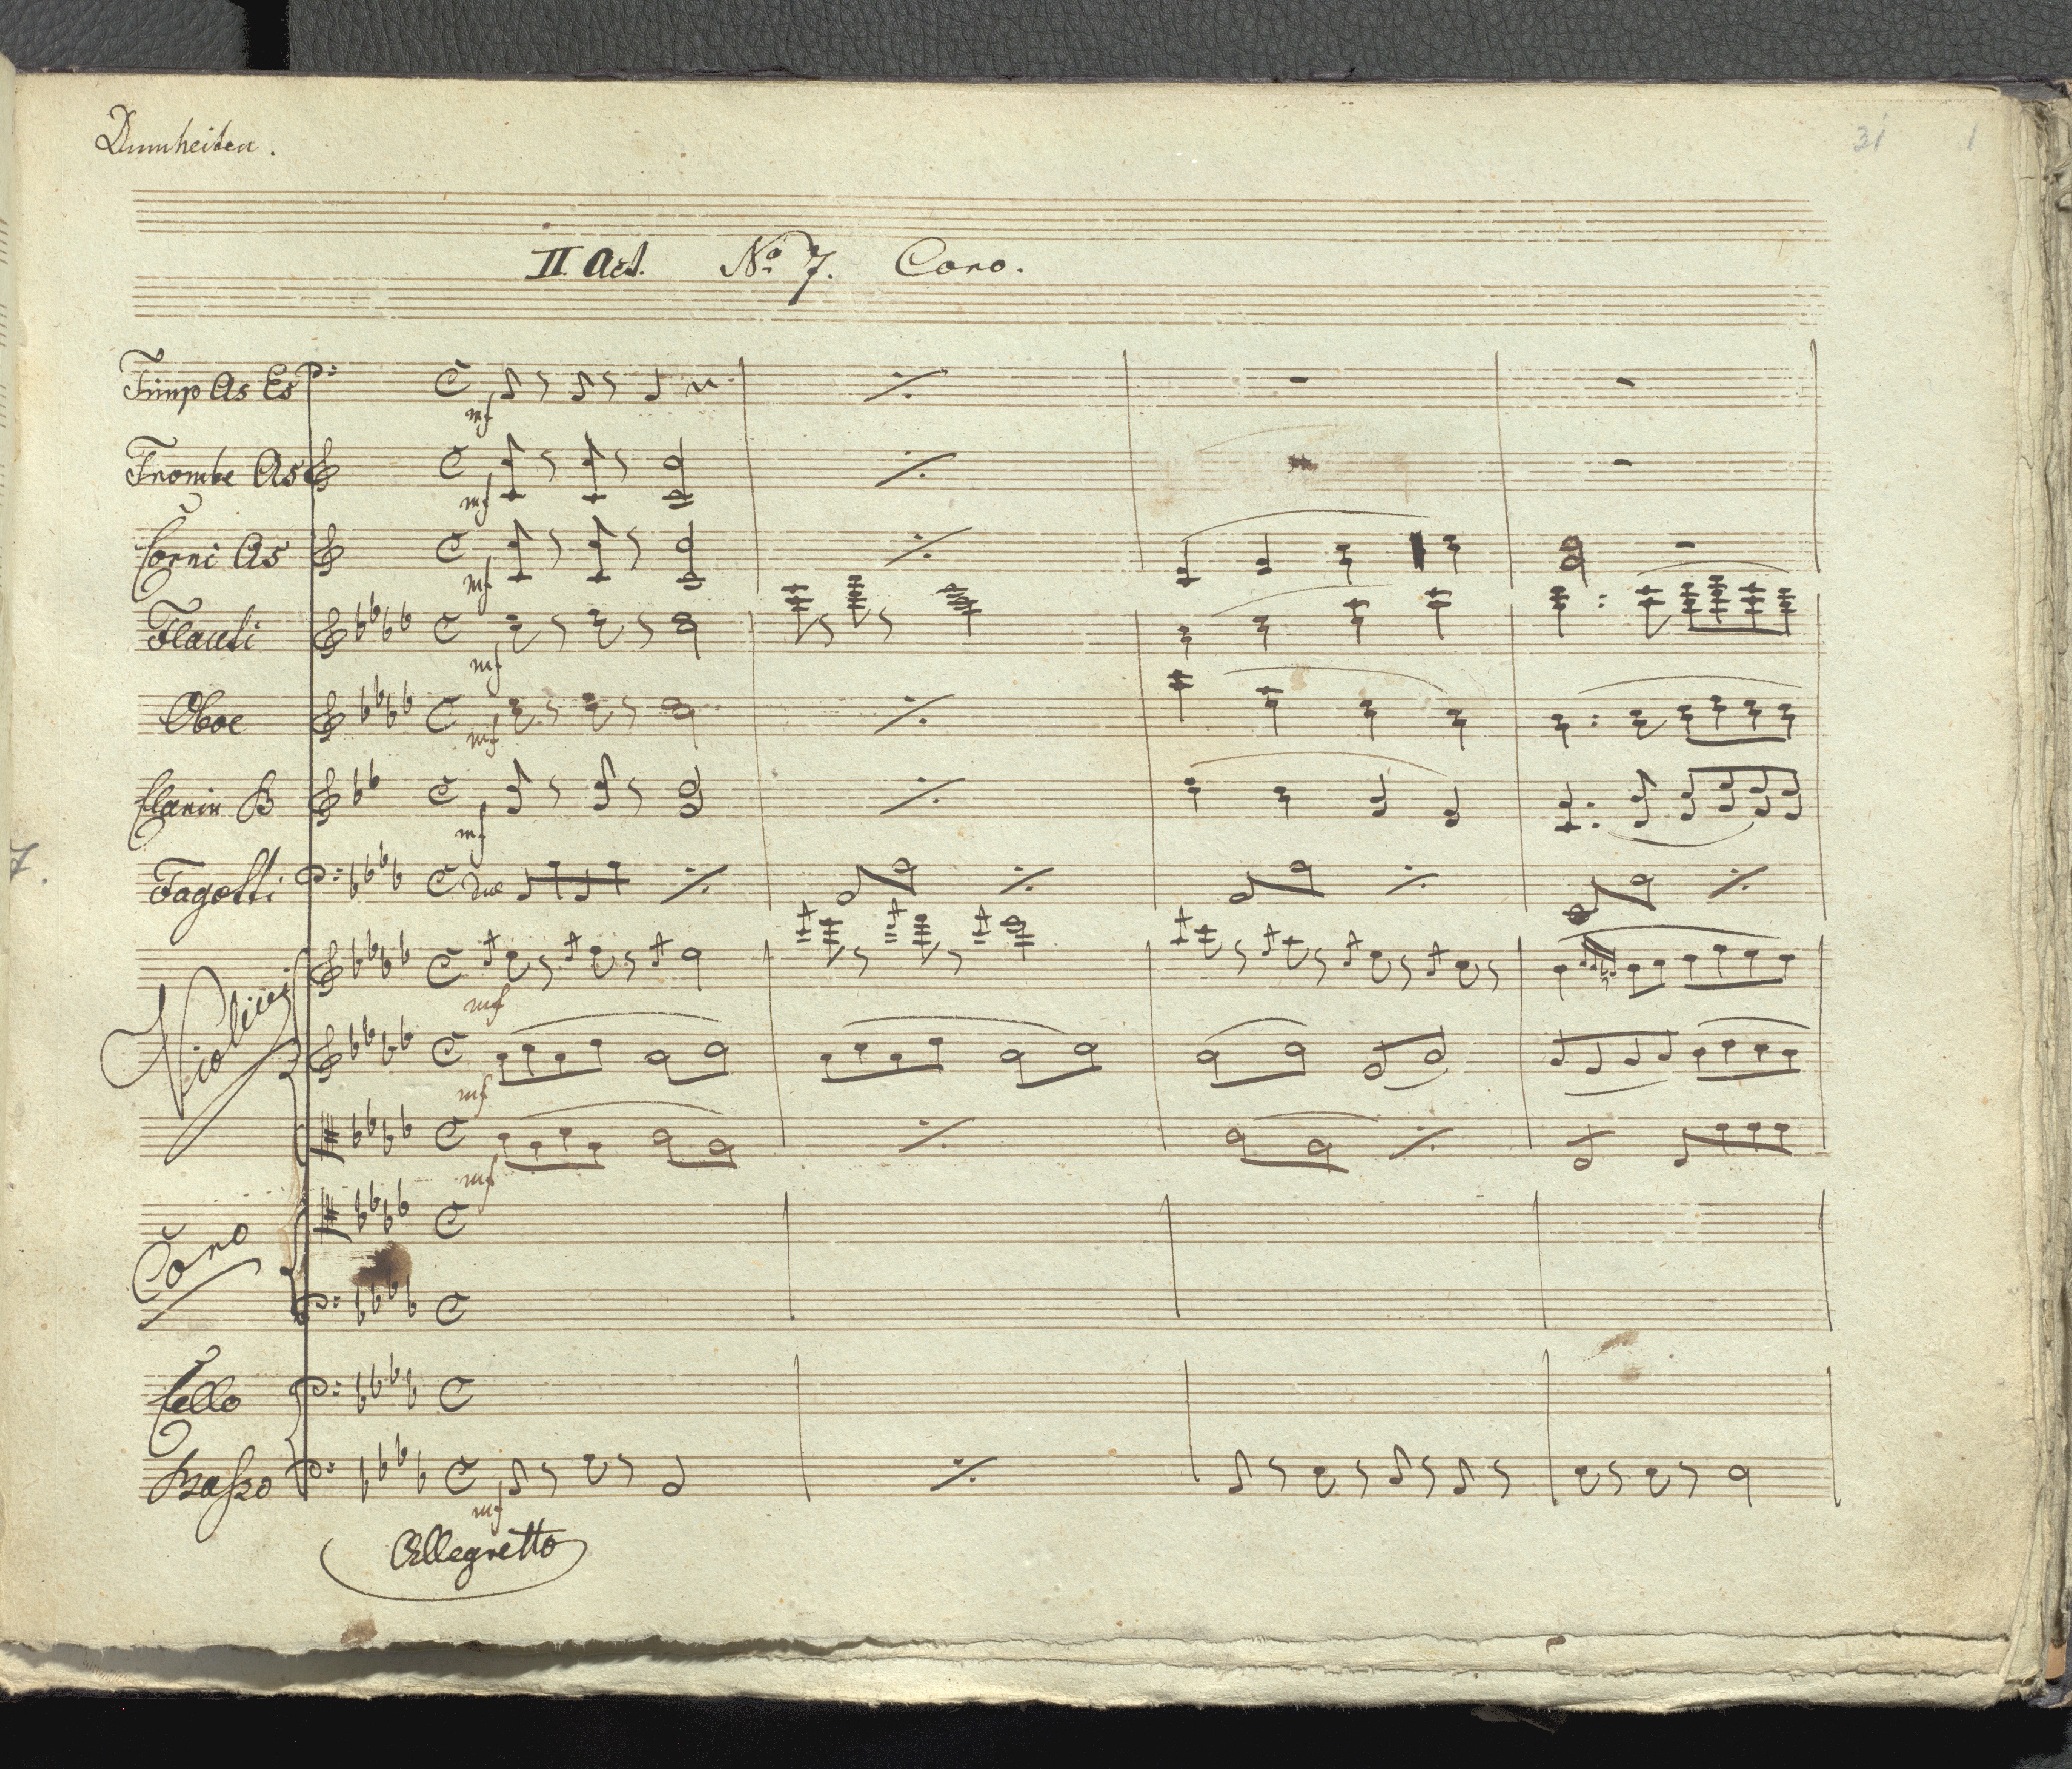 Dumheiten.
31 1
II. Act. No. 7. Coro.
Timp As Es
mf
Trombe As
mf
Corni As
mf
Flauti
mf
Oboe
mf
Clarin B
mf
Fagotti
7.
Violini
mf
mf
mf
Coro
Cello
Basso
mf
Allegretto